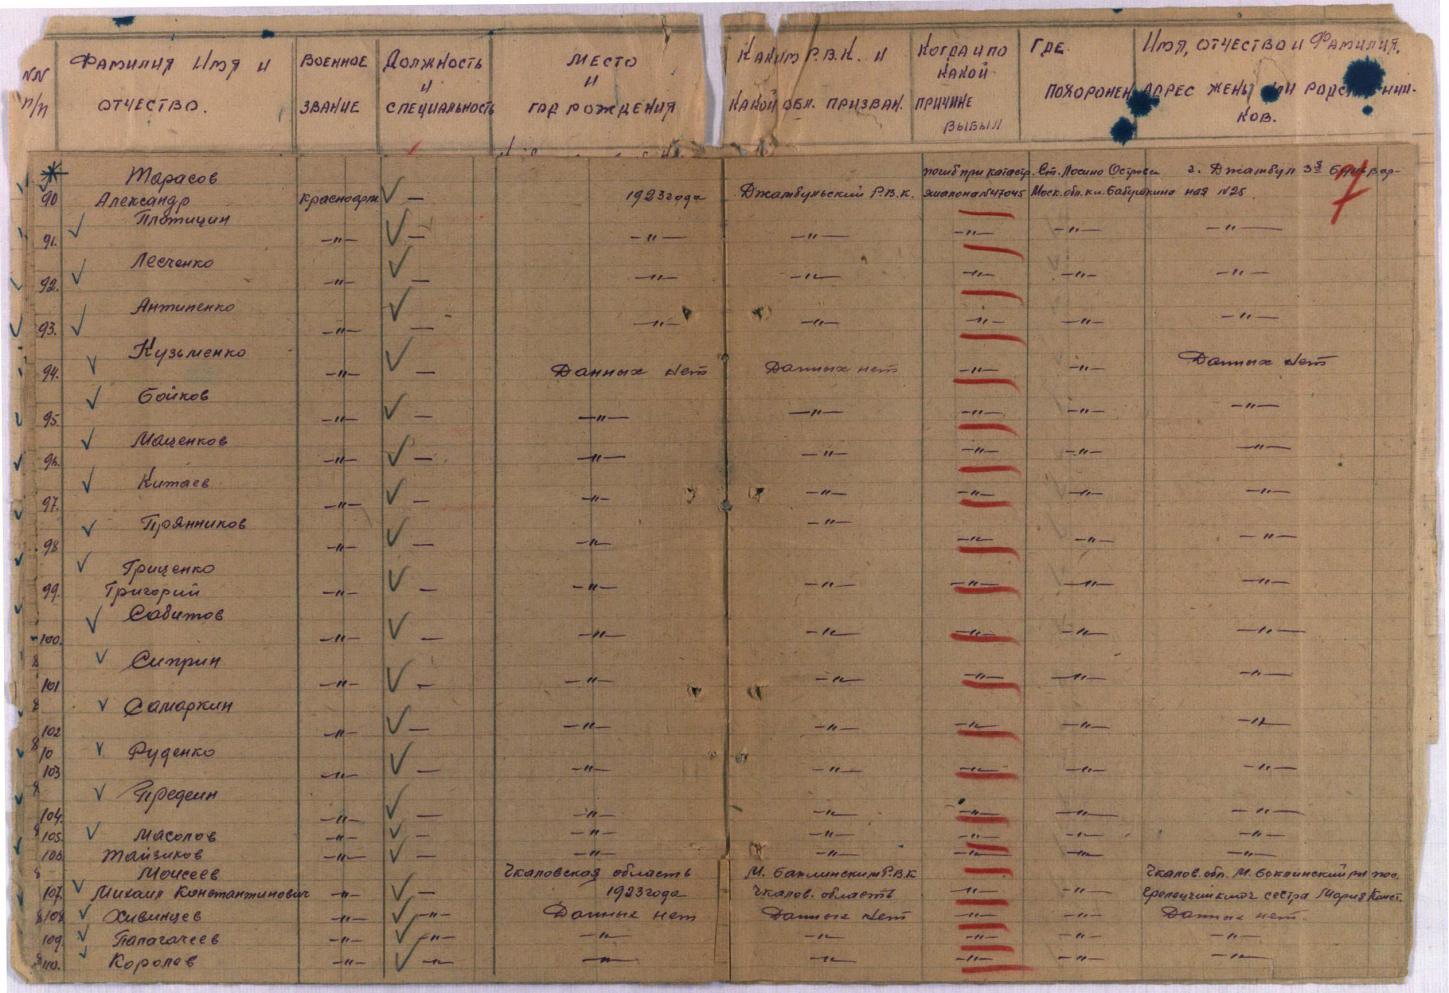 NN п/п
Фамилия Имя и отчество.
Военное звание
Должность и специальность
Место и год рождения
Каким Р.В.К. и какой обл. призван.
Когда и по какой причине выбыл
Где похоронен
Имя, отчество и Фамилия, адрес жены или родственников.
7
90 Тарасов Александр красноарм — 1923 года Джамбульский Р.В.К. погиб при катастр. эшалона N 47045 Ст. Лосино Островск Моск. обл. кл. Бабушкина г. Джамбул 3я ная N 25
91. Плотицин —"— — —"— —"— —"— —"— —"—
92. Лесченко —"— — —"— —"— —"— —"—
93. Антипенко —"— — —"— —"— —"— —"— —"—
94. Кузьменко —"— — Данных нет Данных нет —"— —"— Данных нет
95. Бойков —"— — —"— —"— —"— —"— —"—
96. Маценков —"— — —"— —"— —"— —"— —"—
97. Китаев —"— —"— —"— —"— —"— —"—
98 Прянников —"— — —"— —"— —"— —"— —"—
99. Гриценко Григорий —"— — —"— —"— —"— —"— —"—
100. Сабитов —"— — —"— —"— —"— —"— —"—
101 Сиприн —"— — —"— —"— —"— —"— —"—
102 Самаркин —"— — —"— —"— —"— —"— —"—
103 Руденко —"— — —"— —"— —"— —"— —"—
104. Предеин —"— — —"— —"— —"— —"— —"—
105. Масолов —"— — —"— —"— —"— —"— —"—
106 Тайзиков —"— — —"— —"— —"— —"— —"—
107. Моисеев Михаил Константинович —"— — Чкаловская область 1923 года М. Чкалов. область —"— —"— Чкалов. обл. сестра Мария Конст.
108 Хивинцев —"— —"— Данные нет Данные нет —"— —"— Данные нет.
109. Папагачеев —"— —"— —"— —"— —"— —"— —"—
110. Королев —"— —"— —"— —"— —"— —"— —"—